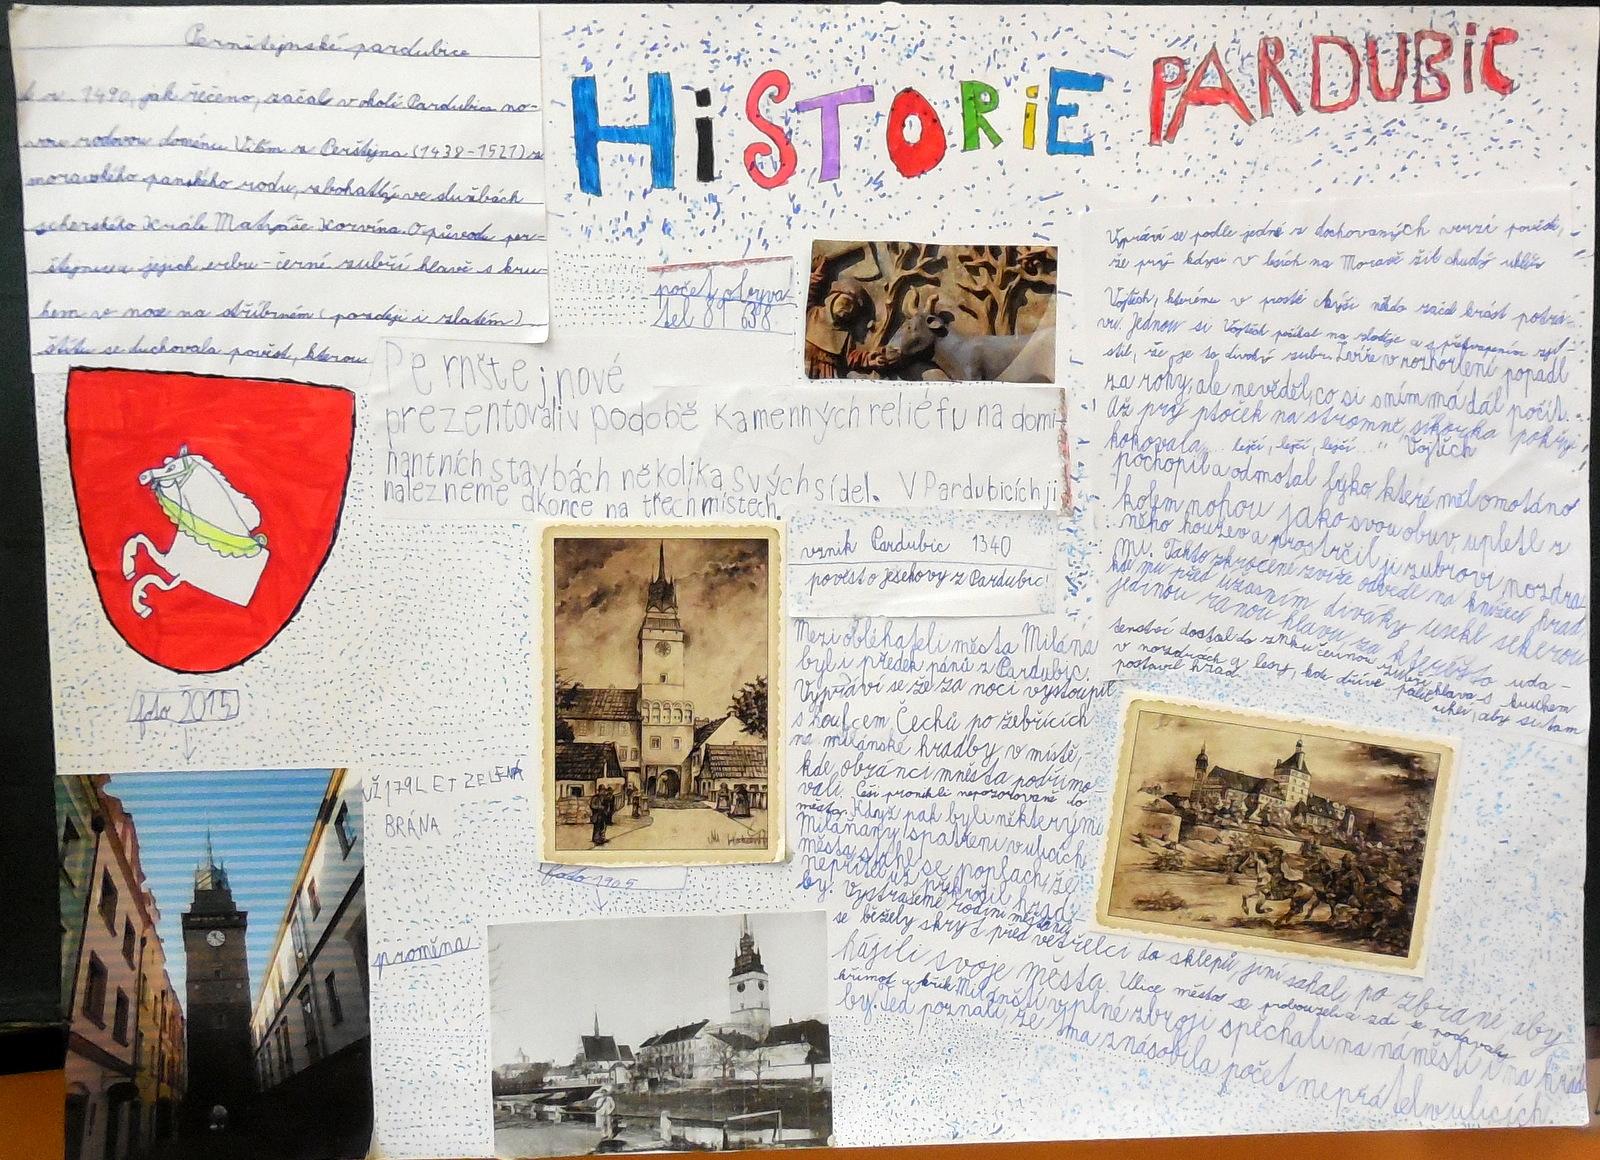 HiSTORiE PARDUBiC
Pernštejnské pardubice
1490, jak řečeno, začal v okolí Pardubice no-
vou rodovou doménu Vilém z Perštýna (1438-1521) z
moravského panského rodu, zbohatlý ve službách
krále Matyáše Korvína. O původu per-
štejnů a jejich erbu - černé zubří hlavě s kru-
hem v noze na stříbrném (později i zlatém)
štítu se duchovala pověst, kterou
počet obyva-
tel 89 638
Pernštejnové
prezentovali v podobě kamenných reliéfu na domi-
nantních stavbách několika svých sídel. V Pardubicích ji
nalezneme dkonce na třech místech.
vznik Pardubic 1340
pověst o Ješkovy z Pardubic!
Mezi obléhateli města Milána
byl i předek pánů z Pardubic.
Vypráví se že za noci vystoupil
s houfcem Čechů po žebřících
na milánské hradby v místě,
kde obránci mněsta podřimo-
vali. Češi pronikli nepozorovaně do
města. Když pak byli některými
Miláňany spatřeni v ulicích
města strhl se poplach, že
nepřítel už překročil hrad-
by. Vystrašené rodiny měšťanů
se běžely skrýt před vetřelci do sklepů jiní sahali po zbrani aby
hájili svoje města. Ulice města se probouzeli a zdi se
hřmot a křik. Milánští v plné zbroji spěchali na náměstí i na hrad-
by. Teď poznali, že tma znásobila počet nepřátel v ulicích.
Vypráví se podle jedné z dochovaných verzí pověsti,
že prý kdysi v lesích na Moravě žil chudý uhlíř
Vojtěch, kterému v prosté chýši někdo začal krást potra-
vu. Jednou si Vojtěch počkal na zloděje a s překvapením zjil-
stil, že je to divoký zubr. Zvíře v rozhořčení popadl
za rohy, ale nevěděl, co si s ním má dál počít.
Až prý ptoček na stromně, sikorka pokři-
kokovala... lejčí, lejčí, lejčí ..." Vojtěch
pochopil a odmotal lýko které měl omotáno
kolem nohou jako svou obuv, upletl z
něho houžev a prostrčil ji zubrovi nozdra-
mi. Takto zkrocené zvíře odvedl na knížecí hrad,
kde mu před užaslími diváky usekl sekerou
jedinou ranou hlavu za kteréžto uda-
tenství dostal do znaku černou zubří hlavu s kruhem
v nozdrách a lesy, kde dříve pálil uhlí, aby si tam
postavil hrad.
foto 2015
UŽ 179 LET ZELENÁ
BRÁNA
foto 1905
proměna